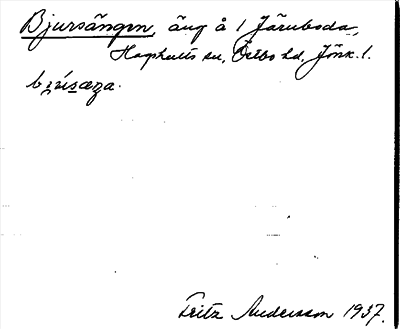 Bjursängen, äng å 1 Järnboda,
Haghults sn, Östbo hd, Jönk. l.
bjúsæŋa.
Fritz Andersson 1937.